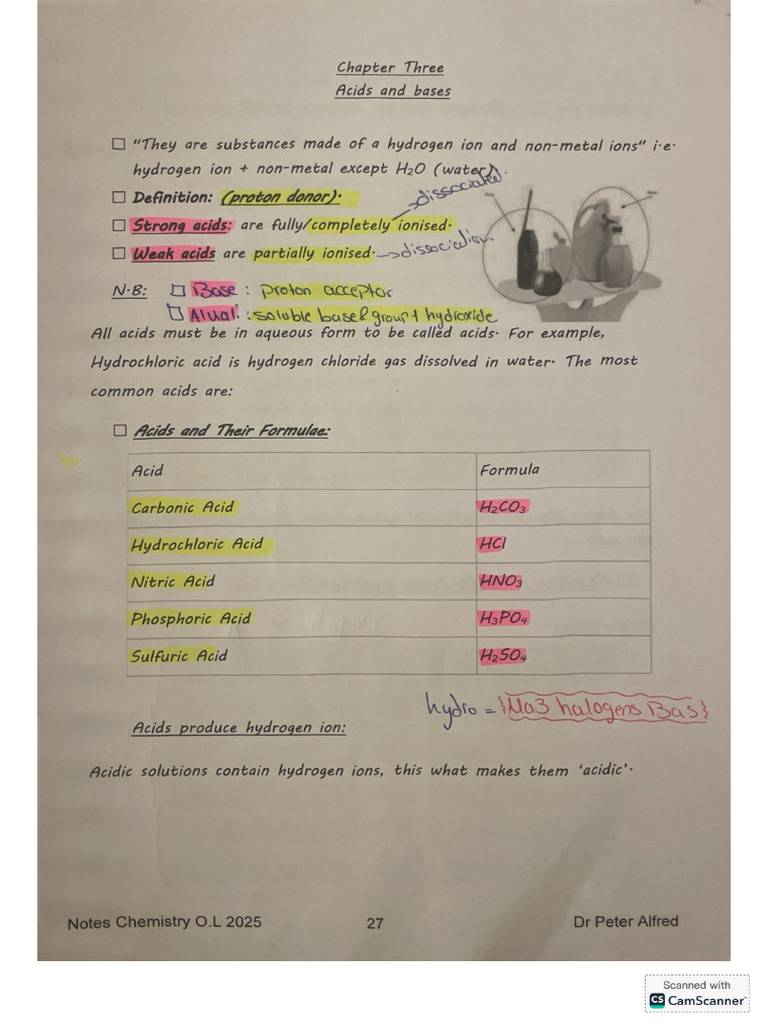 Chapter Three
Acids and bases
☐ "They are substances made of a hydrogen ion and non-metal ions" i.e.
hydrogen ion + non-metal except H₂O (water).
☐ Definition: (proton donor).
→dissociated
☐ Strong acids: are fully/completely ionised.
☐ Weak acids are partially ionised. →dissociation
N.B: ☐ Base : proton acceptor
☐ : soluble base & group 1 hydroxide
All acids must be in aqueous form to be called acids. For example,
Hydrochloric acid is hydrogen chloride gas dissolved in water. The most
common acids are:
☐ Acids and Their Formulae:
Acid Formula
Carbonic Acid H₂CO₃
Hydrochloric Acid HCl
Nitric Acid HNO₃
Phosphoric Acid H₃PO₄
Sulfuric Acid H₂SO₄
hydro = {Ma3 halogens Bas}
Acids produce hydrogen ion:
Acidic solutions contain hydrogen ions, this what makes them 'acidic'.
Notes Chemistry O.L 2025 27 Dr Peter Alfred
Scanned with
CS CamScanner